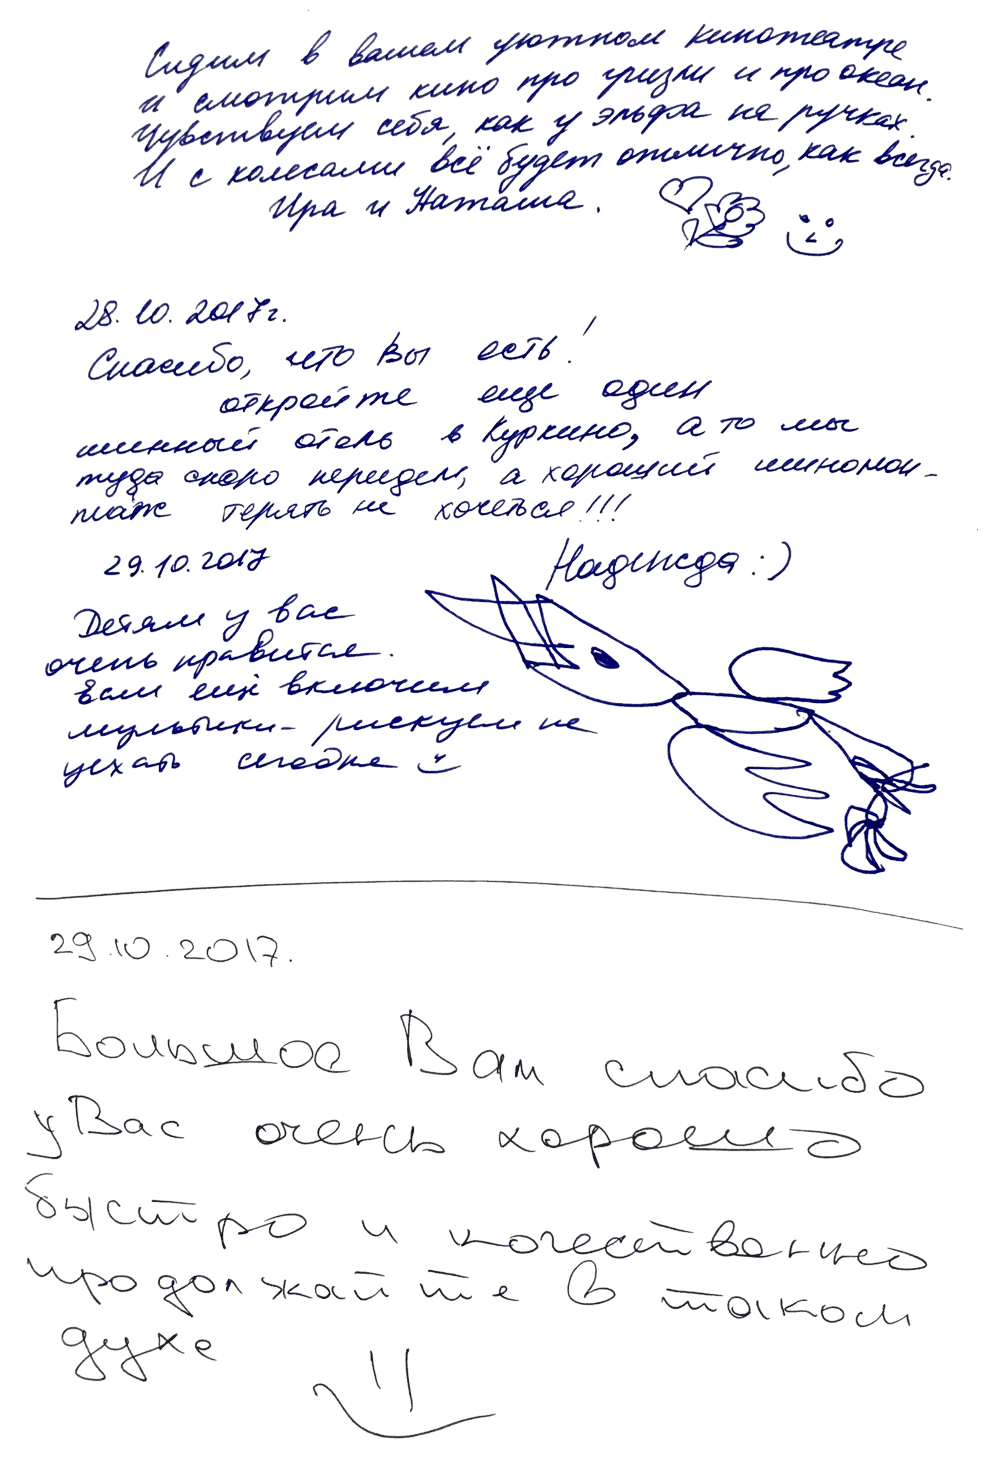 Сидим в вашем уютном кинотеатре
и смотрим кино про гризли и про океан.
Чувствуем себя, как у эльфа на ручках.
И с колесами всё будет отлично, как всегда.
Ира и Наташа.
28.10.2017г.
Спасибо, что Вы есть!
откройте еще один
шинный отель в Куркино, а то мы
туда скоро переедем, а хороший шиномон-
таж терять не хочеться!!!
Надежда :)
29.10.2017
Детям у вас
очень нравится.
Вам ещё включим
мультики - рискуем не
уехать сегодня
29.10.2017.
Большое Вам спасибо
у Вас очень хорошо
быстро и качественно
продолжайте в таком
духе